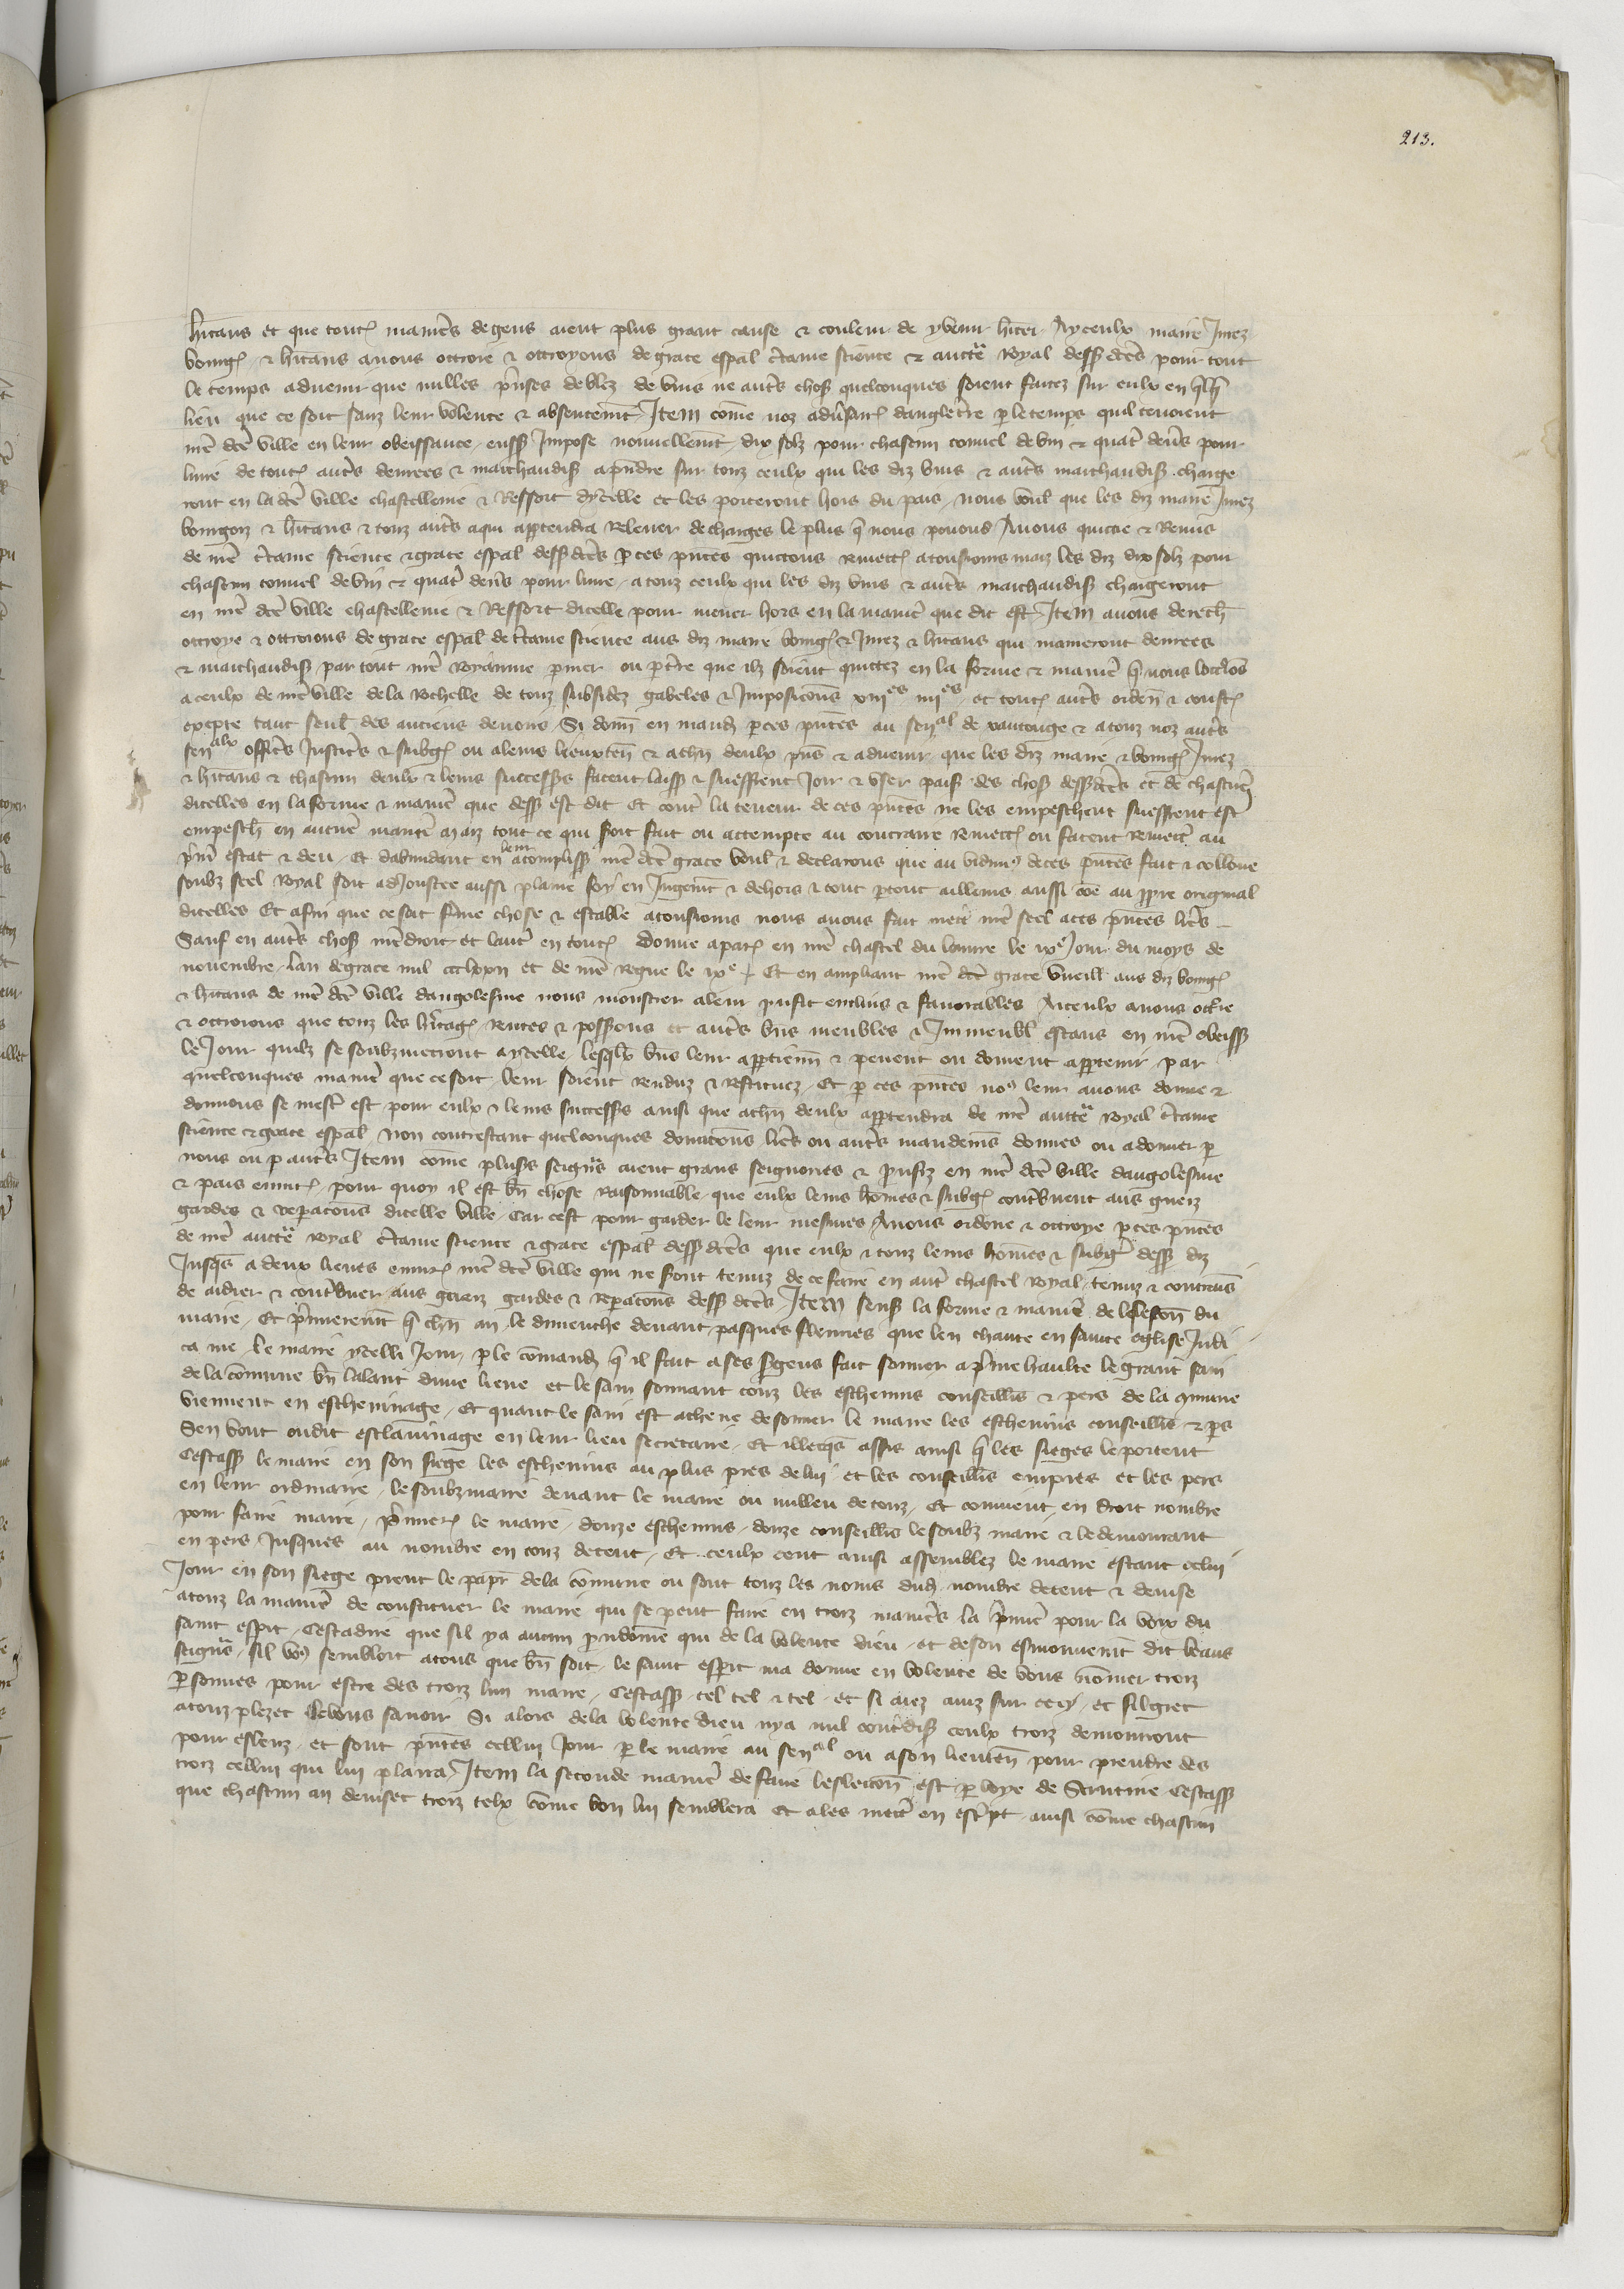 213.
h̄itans et que tout̃ manieˢ de gens aient plus grant cause & couleur de y venir h̄iter. Ayceulx maire Jurez
bourgˢ & h̄itans auons ottroie & ottroyons de grace esp̄al c̄taine science & auct̃e Royal dess̃ dc̄es pour tout
le temps aduenir que nulles p̄nses de blez de vins ne aut̃s chos̃ quelconques soient faitez sur eulx en q̄lq̄
lieu que ce soit sanz leur volente & absentemt̄ Item com̄e noz adūsair̃ dangletr̃e p le temps quil tenoient
nr̄e dc̄e ville en leur obeissance, euss̃ Impose nouuellemt̄ dix solz pour chascun tonnel de vin & quat̃ den̄s pour
liure de tout̃ aut̃s denrees & marchandis̃ a p̄ndre sur touz ceulx qui les diz vins & aut̃s marchandis̃ charge
ront en la dc̄e ville chastellenie & Ressort dycelle et les porteront hors du pais, nous voul̃ que les diz maire Jurez
bourgois & h̄itans & touz aut̃s a qui app̱tendra Releuer de charges le plus q̄ nous pouons Auons quictie & Remis
de nr̄e c̄taine science & grace esp̄al dess̃ dc̄es p ces pn̄tes quictons remect̃ a tousiours maiz les diz dix solz pour
chascun tonnel de vin & quat̃ den̄s pour liure, a touz ceulx qui les diz vins & aut̃s marchandis̃ chargeront
en nr̄e dc̄e ville chastellenie & Ressort dicelle pour mener hors en la manie᷑ que dit est Item auons derech̄
ottroye & ottroions de grace esp̄al de c̄taine science aus diz maire bourgˢ & Jurez & h̄itans qui mainront denrees
& marchandis̃ par tout nr̄e Royaume p mer ou p tr̄e que ilz soient quittez en la forme & manie᷑ q̄ nous lottr̃ions
a ceulx de nr̄e ville de la Rochelle de touz subsidez gabeles & Imposicions xiijes iiijes et tout̃ aut̃s orden̄ & coust̃
excepte tant seul̃ des anciens deuoirs Si donn̄ en mand̃ p ces pn̄tes au senal de xantonge & a touz noz aut̃s
senalx offic̃s Justic̃s & subgˢ ou a leurs lieuxten̄ & a chn̄ deulx pn̄s & aduenir que les diz maire & bourgˢ Jurez
& h̄itans & chascun deulx & leurs success̃s facent laiss̃ & sueffrent Joir & vser paisˢ des chos̃ dess̃ dc̄es et de chascune
dicelles en la forme & manie᷑ que dess̃ est dit Et cont̃ la teneur de ces pn̄tes ne les empeschent sueffrent est̃
empesch̃ en aucune manie᷑ maiz tout ce qui soit fait ou attempte au contraire remect̃ ou facent remect̃ au
p̄m̃ estat & deu, Et dabundant en leur acompliss̃ nr̄e dc̄e grace voul̃ & declairons que au vidimus de ces pn̄tes fait & collone
soubz scel Royal soit adJoustee aussi plaine foy en Jugemt̄ & dehors & tout p̱tout ailleurs aussi coē au p̱pre original
dicelles Et afin que ce soit ferme chose & estable a tousiours nous auons fait mect̃ nr̄e scel a ces pn̄tes lr̄es
Sauf en aut̃s chos̃ nr̄e droit et lautˢ en tout̃ donne a parˢ en nr̄e chastel du louure le ixᵉ Jour du moys de
nouembre, lan de grace mil ccclxxij et de nr̄e Regne le ixᵉ Et en ampliant nr̄e dc̄e grace vueill̃ aus diz bourgˢ
& h̄itans de nr̄e dc̄e ville dangolesme nous monstrer a leur p̱ufit enclins & fauorables Aiceulx auons ottr̃ie
& ottroions que touz les h̄itagˢ Rentes & poss̃ions et aut̃s bn̄s meubles & Jmmeubl̃ estans en nr̄e obeiss̃
le Jour quilz se soubzmectront a ycelle, lesqlx̄ bn̄s leur app̱tienn̄ & peuent ou doiuent app̱tenir par
quelconques manie᷑ que ce soit leur soient renduz & restituez, Et p ces pn̄tes noˢ leur auons donne &
donnons se mest̃ est pour eulx & leurs success̃s ainsi que a chn̄ deulx app̱tendra de nr̄e auct̃e Royal c̄taine
science & grace esp̄al Non contrestant quelconques donacōns lr̄es ou aut̃s mandemˢ donnes ou a donner p
nous ou p aut̃s Item com̄e plusˢ seignr̃s aient grans seignories & p̱ufiz en nr̄e dc̄e ville dangolesme
& pais enuirˢ pour quoy il est bn̄ chose Raisonnable que eulx leurs hōmes & subgˢ contr̃buent aus guetz
gardes & reparacōns dicelle ville, Car cest pour garder le leur mesmes Auons ordene & ottroye p ces pn̄tes
de nr̄e auct̃e Royal c̄taine science & grace esp̄al dess̃ dc̄es que eulx & touz leurs hōmes & subgˢ dess̃ diz
Jusqs̄ a deux lieues enuirˢ nr̄e dc̄e ville qui ne sont tenuz de ce faire en aut̃ chastel Royal, tenuz & contrains
de aidier & contr̃buer aus guetz gardes & reparacōns dess̃ dc̄es, Item sens̃ la forme & manie᷑ de leslecōn du
maire, Et p̄mieremt̄ q̄ chn̄ an le dimenche deuant pasques flories que len chante en saincte eglise Judi
ca me, le maire ycelli Jour, p le cōmand̃ q̄ il fait a ses s̱gens fait sonner a p̄me haulte le grant sain
de la cōmune bn̄ lalant dune lieue et le sain sonnant touz les escheuins conseill̃s & pers de la cōmune
viennent en escheuinage, Et quant le sain est acheue de sonner le maire les escheuins conseill̃s & p̱s
Sen vont oudit escheuinage en leur lieu secretaire, Et illecqs̄ assis ainsi q̄ les sieges le portent
Cestass̃ le maire en son siege les escheuins au plus pres de lui et les conseill̃s empres et les pers
en leur ordinaire, le soubzmaire deuant le maire ou milieu de touz, Et conuient en droit nombre
pour faire maire, p̄mierˢ le maire, douze escheuins, douze conseill̃s le soubz maire & le demourant
en pers Jusques au nombre en touz de cent, Et ceulx cent ainsi assemblez le maire estant celui
Jour en son siege prent le papr̃ de la cōmune ou sont touz les noms dud̃ nombre de cent & deuise
a touz la manie᷑ de constituer le maire qui se peut faire en troiz manie᷑s la p̄mie᷑ pour la voix du
saint esp̄it, Cestadire que sil ya aucun p̱udomme qui de la volente dieu, et de son esmouuemt̄ dit beaus
seignr̃s, sil voˢ sembloit a tous que bn̄ soit, le saint esperit ma donne en volente de vous nōmer troiz
p̱sonnes pour estre des troiz lun maire, Cestass̃, tel tel & tel, et si aiez auiz sur cecy, et sil gree
a touz plezet le vous sauoir Si alors de la volente dieu nya nul contr̃dis̃ ceulx troiz demourront
pour esleuz, et sont pn̄tes cellui Jour p le maire au senal ou a son lieuten̄ pour prendre des
troiz cellui qui lui plaira, Item la seconde manie᷑ de faire leslecōn est p voye de Scrutine Cestass̃
que chascun an deuiset troiz telx cōme bon lui semblera et a les mect̃ en escr̃ipt, ainsi cōme chascun